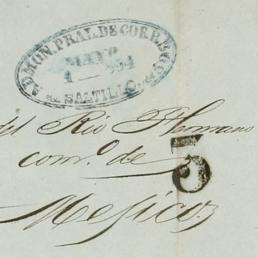 ADMON. PRAL. DE CORREOS
MAYO
1 854
SALTILLO.
del Rio Hermano
com.o de
5
Mejico